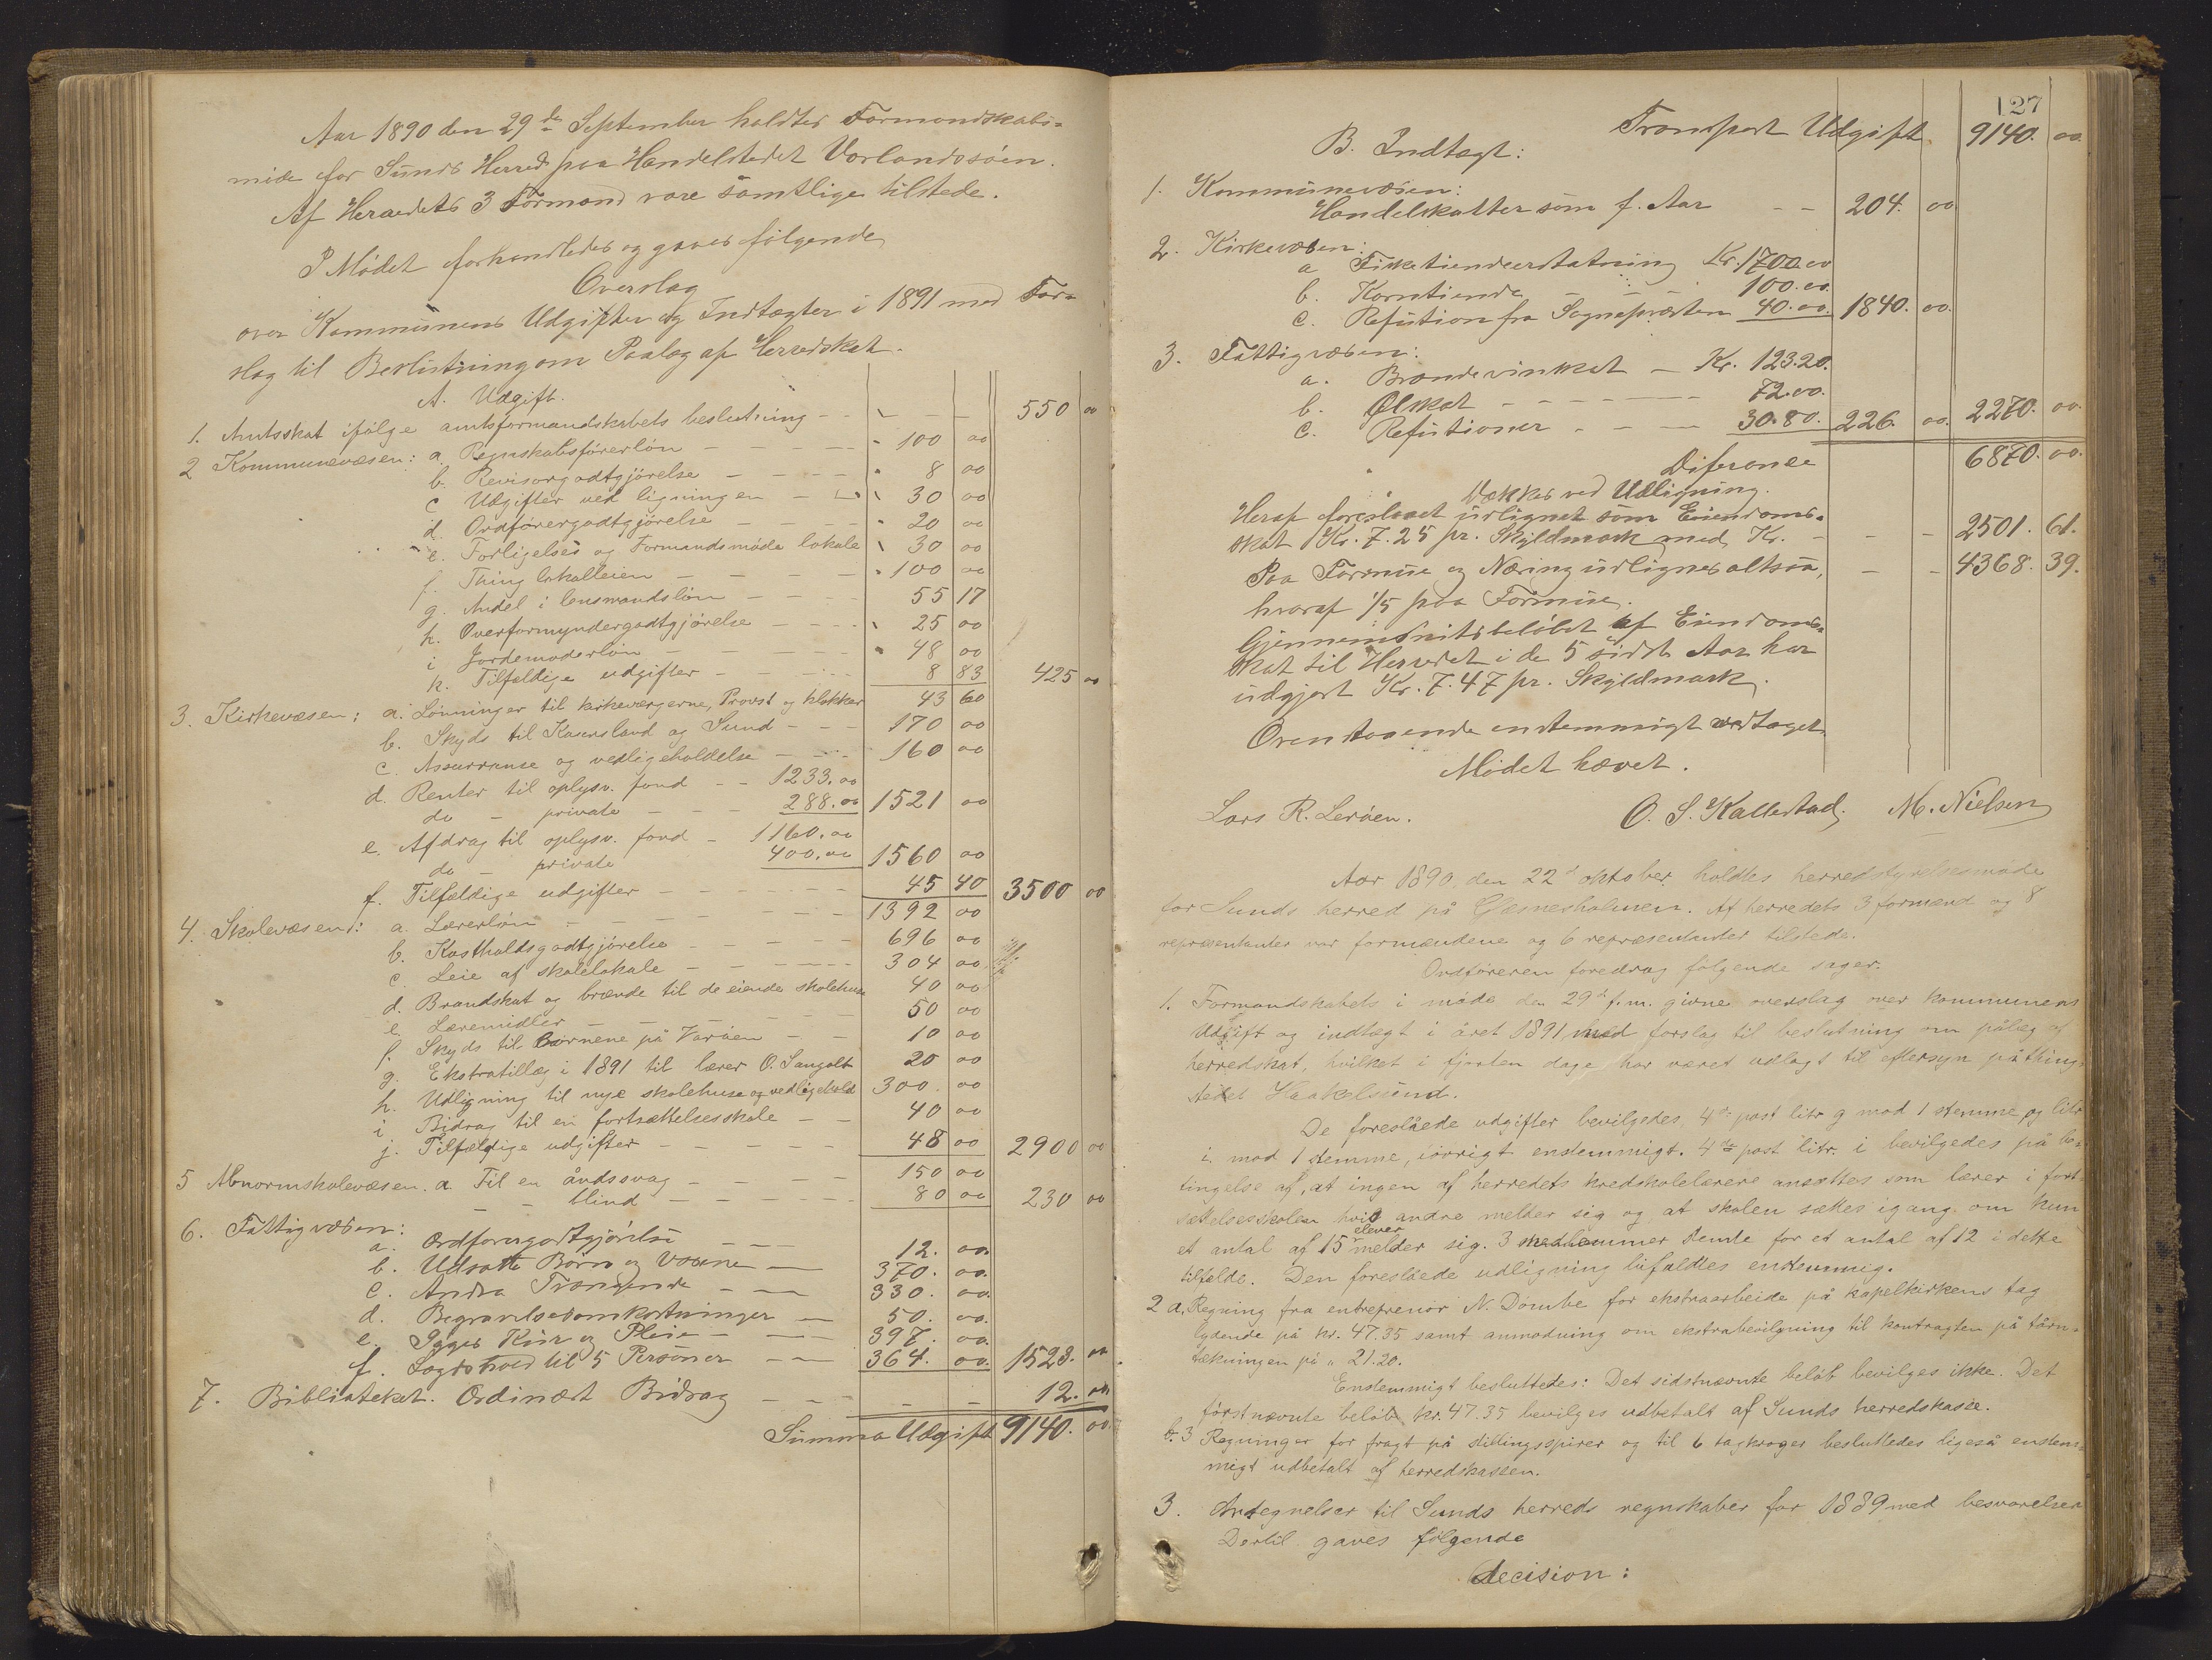 Aar 1890 den 29de September holdtes Formandskabs-
møde for Sunds Herred paa Handelstedet Vorlandsøen.
Af Herredets 3 Formænd vare samtlige tilstede.
I Mødet forhandledes og gaves følgende
Overslag
over Kommunens Udgifter og Indtægter i 1891 med For-
slag til Beslutning om Paalæg af Herredskat.
A. Udgift.
1. Amtsskat ifølge amtsformandskabets beslutning - - 550 00
2 Kommunevæsen: a. Regnskabsførerløn - - 100 00
b. Revisorgodtgjørelse - - 8 00
c Udgifter ved ligningen - - 30 00
d. Ordførergodtgjørelse - - 20 00
e. Forligelses og Formandsmøde lokale 30 00
f. Thinglokalleien - - 100 00
g. Andel i lensmandsløn - - 55 17
h. Overformyndergodtgjørelse - - 25 00
i Jordemoderløn - - 48 00
k. Tilfældige udgifter - - 8 83 425 00
3. Kirkevæsen: a. Lønninger til kirkeværgerne, Provst og klokker 43 60
b. Skyds til Kasersland og Sund - - 170 00
c. Assurranse og vedligeholdelse - - 160 00
d. Renter til oplysn. fond - - 1233.00
do - private - - 288.00 1521 00
e. Afdrag til oplysn. fond - 1160.00
do - private 400.00 1560 00
f. Tilfældige udgifter - - 45 40 3500 00
4. Skolevæsen: a. Lærerløn - - 1392 00
b. Kostholdsgodtgjørelse - - 696 00
c. Leie af skolelokale - - 304 00
d. Brandskat og brænde til de eiende skolehuse 40 00
e. Læremidler - - 50 00
f. Skyds til Børnene på Varøen - - 10 00
g. Ekstratillæg i 1891 til lærer O. Sangolt 20 00
h. Udligning til nye skolehuse og vedligehold 300 00
i Bidrag til en fortsættelsesskole - - 40 00
j. Tilfældige udgifter - - 48 00 2900 00
5 Abnormskolevæsen. a. Til en åndssvag - - 150 00
- - blind - - 80 00 230 00
6. Fattigvæsen:
a. Ordførergodtgjørelse - - 12. 00.
b. Udsatte Børn og Voxne - 370. 00.
c. Andre Trængende - - 330. 00.
d. Begravelsesomkostninger - 50. 00.
e. Syges Kur og Pleie - - 397. 00.
f. Lægdshold til 5 Personer - - 364. 00. 1523. 00
7. Bibliotheket. Ordinært Bidrag - - 12. 00.
Summa Udgift 9140. 00.
127
Transport Udgift 9140. 00.
B. Indtægt:
1. Kommunevæsen:
Handelskatter som f. Aar - - 204. 00
2. Kirkevæsen:
a Fisketiendeerstatning Kr. 1700.00
b. Korntiende - - 100.00.
c. Refusion fra Sognepræsten 40.00. 1840. 00.
3. Fattigvæsen:
a. Brændevinskat - Kr. 123.20.
b. Ølskat - - 72.00.
c. Refusioner - - 30.80. 226. 00. 2270. 00.
Diferance 6870. 00.
Dækkes ved Udligning.
Heraf foreslaaet udlignet som Eiendoms-
skat Kr. 7.25 pr. Skyldmark med Kr. - - 2501. 61.
Paa Formue og Næring udlignes altsaa, - - 4368. 39.
hvoraf 1/5 paa Formue.
Gjennemsnitsbeløbet af Eiendoms-
skat til Herredet i de 5 sidste Aar har
udgjort Kr. 7.47 pr. Skyldmark.
Ovenstaaende enstemmigt vedtaget.
Mødet hævet.
Lars R. Lerøen. O. S. Kallestad. M. Nielsen
Aar 1890, den 22de oktober holdtes herredstyrelsesmøde
for Sunds herred på Glæsnesholmen. Af herredets 3 formænd og 8
repræsentanter var formændene og 6 repræsentanter tilstede.
Ordføreren foredrag følgende sager.
1. Formandskabets i møde den 29de f. m. givne overslag over kommunens
Udgift og indtægt i året 1891 med forslag til beslutning om pålæg af
herredskat, hvilket i fjorten dage har været udlagt til eftersyn på thing-
stedet Haakelsund.
De foreslåede udgifter bevilgedes, 4de post litr g mod 1 stemme og litr
i. mod 1 stemme, iøvrigt enstemmigt. 4de post litr. i bevilgedes på be-
tingelse af, at ingen af herredets kredsskolelærere ansættes som lærer i fort-
sættelsesskolen hvis andre melder sig og at skolen sættes igang om kun
et antal af 15 elever melder sig. 3 medlemmer stemte for et antal af 12 i dette
tilfælde. Den foreslåede udligning bifaldtes enstemmig.
2 a. Regning fra entreprenør N. Dombe for ekstraarbeide på kapelkirkens tag
lydende på kr. 47.35 samt anmodning om ekstrabevilgning til kontragten på tårn-
tækningen på " 21.20.
Enstemmigt besluttedes: Det sidstnævnte beløb bevilges ikke. Det
førstnævnte beløb kr. 47.35 bevilges udbetalt af Sunds herredskasse.
b. 3 Regninger for fragt på stillingsspirer og til 6 tagkroger besluttedes ligeså enstem-
migt udbetalt af herredskassen.
3. Antegnelser til Sunds herreds regnskaber for 1889 med besvarelser
Dertil gaves følgende
decision: